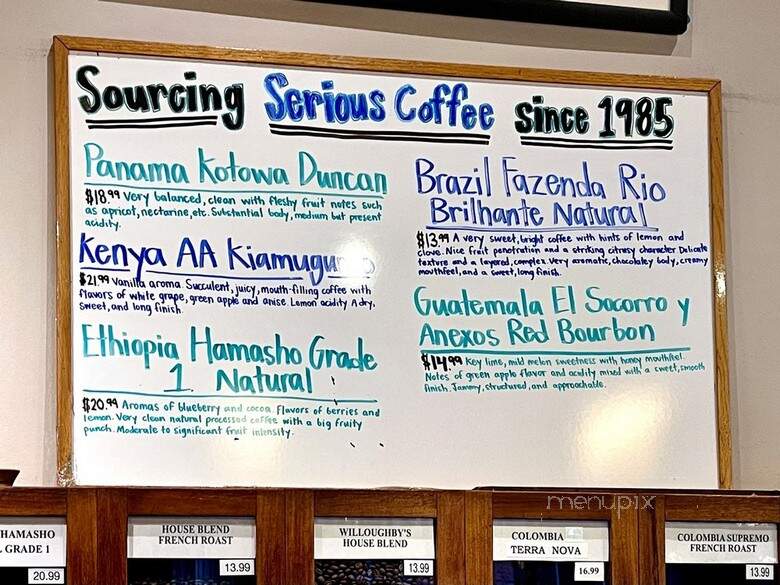 Sourcing Serious Coffee since 1985
Panama Kotowa Duncan
$18.99 Very balanced, clean with fleshy fruit notes such
as apricot, nectarine, etc. Substantial body, medium but present
acidity.
Kenya AA
$21.99 Vanilla aroma. Succulent, juicy, mouth-filling coffee with
flavors of white grape, green apple and anise. Lemon acidity. A dry,
sweet, and long finish.
Ethiopia Hamasho Grade
1 Natural
$20.99 Aromas of blueberry and cocoa. Flavors of berries and
lemon. Very clean natural processed coffee with a big fruity
punch. Moderate to significant fruit intensity.
Brazil Fazenda Rio
Brilhante Natural
$13.99 A very sweet, bright coffee with hints of lemon and
clove. Nice fruit penetration and a striking citrusy character. Delicate
texture and a layered, complex. Very aromatic, chocolatey body, creamy
mouthfeel, and a sweet, long finish.
Guatemala El Socorro y
Anexos Red Bourbon
$14.99 Key lime, mild melon sweetness with honey mouthfeel.
Notes of green apple flavor and acidity mixed with a sweet, smooth
finish. Jammy, structured, and approachable.
menupix
HAMASHO
L GRADE 1
20.99
HOUSE BLEND
FRENCH ROAST
13.99
WILLOUGHBY'S
HOUSE BLEND
13.99
COLOMBIA
TERRA NOVA
16.99
COLOMBIA SUPREMO
FRENCH ROAST
13.99